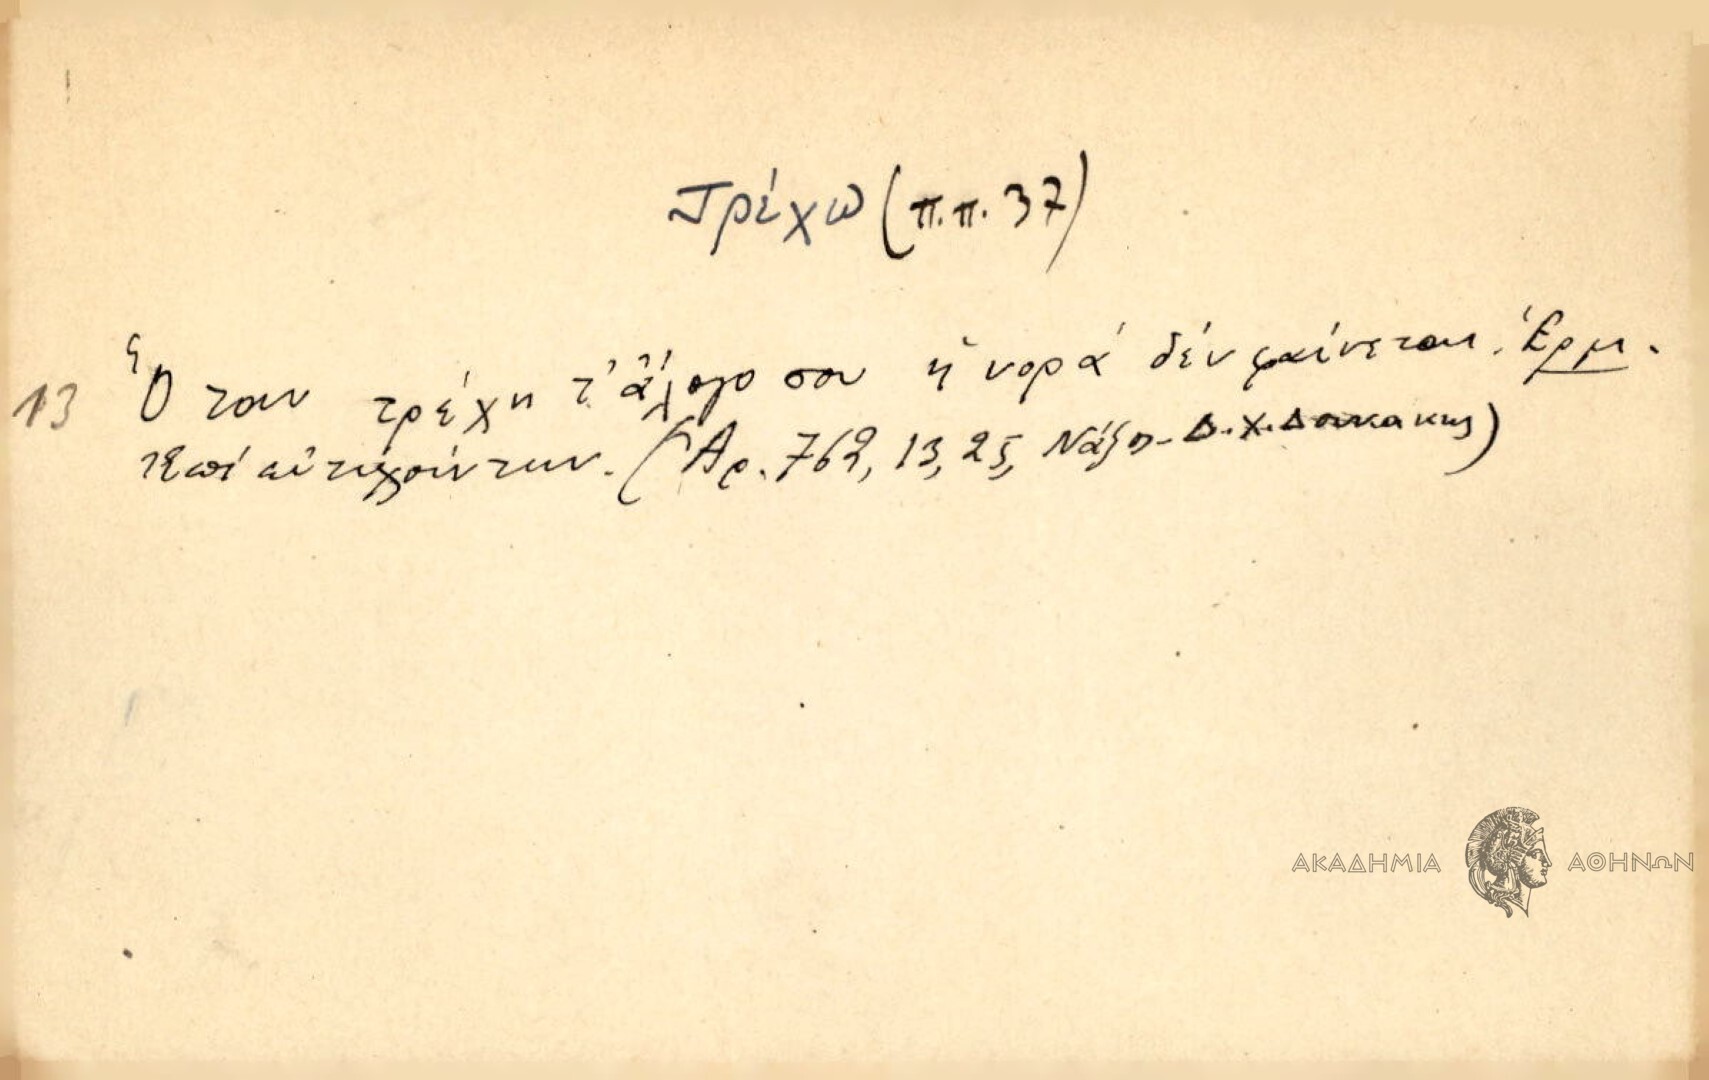 Τρέχω (π.π. 37)
13 Ὅταν τρέχη τ' ἄλογο σου ἡ νορά δέν φαίνεται. Ἑρμ.
Ἐπί εὐτυχούντων. (Ἀρ. 762, 13, 25, Νάξο - Δ. Χ. Δουκακης)
ΑΚΑΔΗΜΙΑ ΑΘΗΝΩΝ